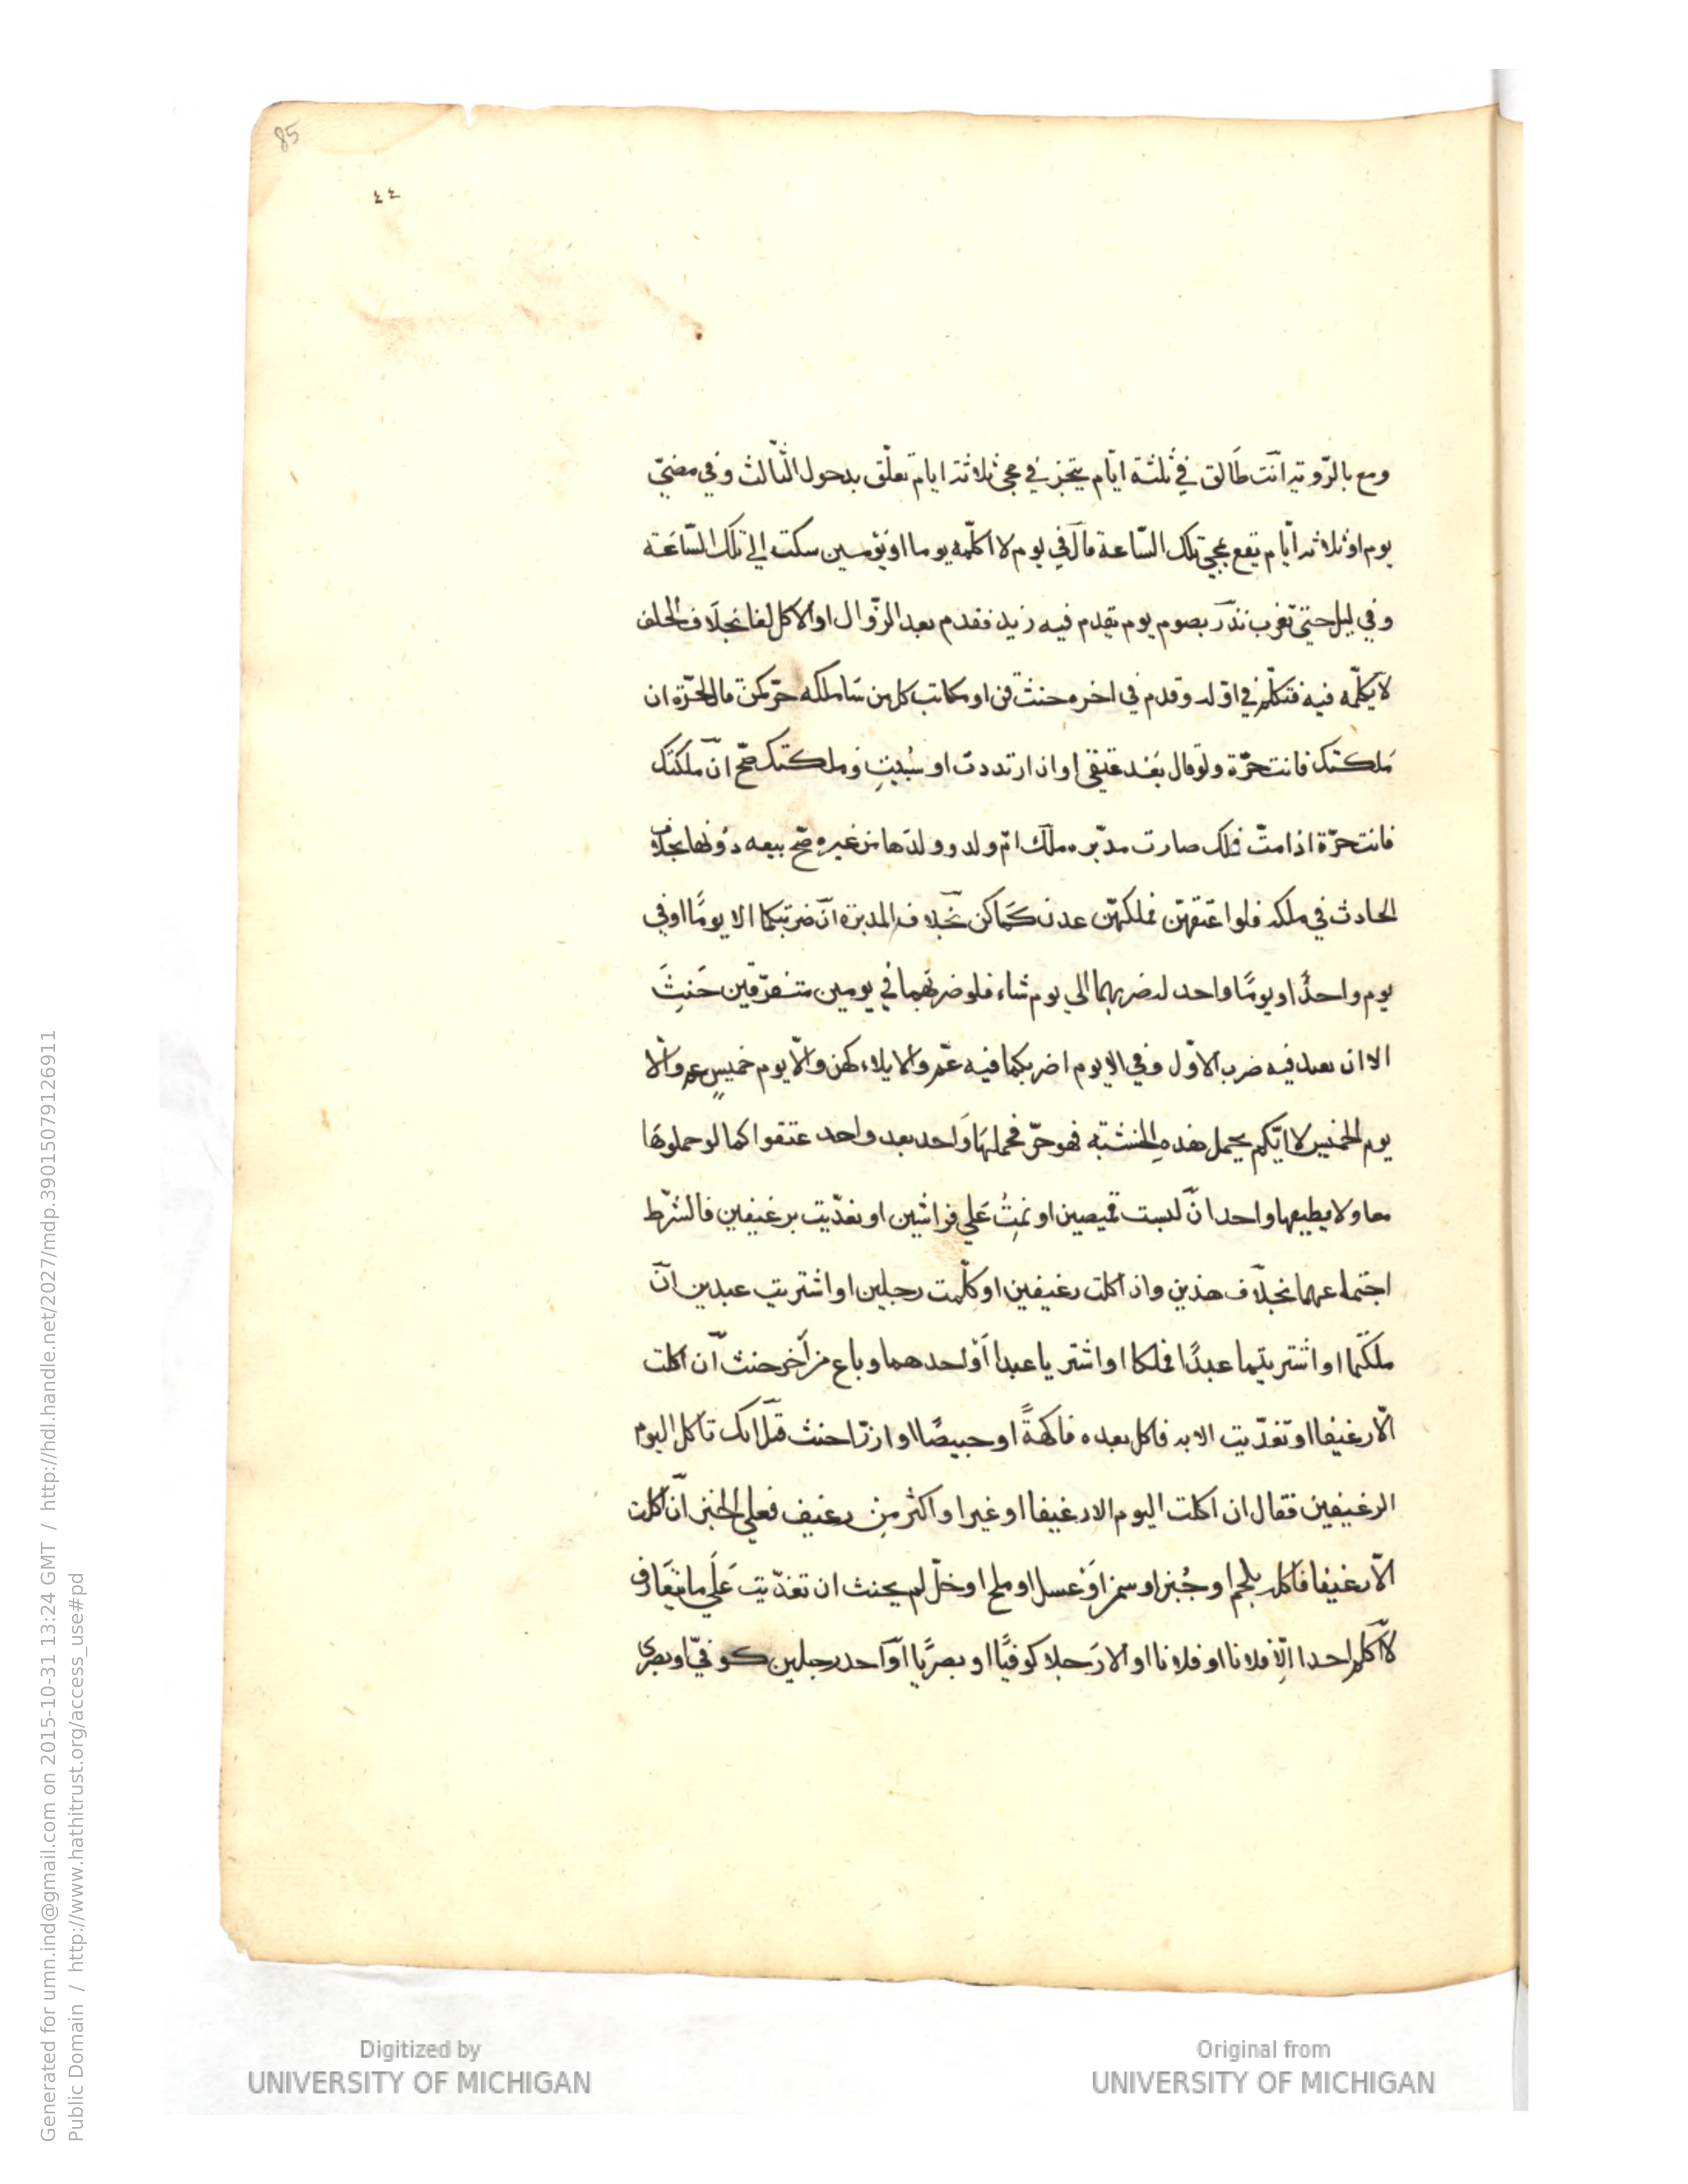 85
٤٤
ومع بالرّوية انت طالق في ثلثة ايّام يتنجز في مجى ثلاثة ايام تعلّق بدخول الثالث وفي مضيّ
يوم او ثلاثة ايّام تقع بمجى تلك السّاعة قال في يوم لا اكلّمه يوما او يومين سكت الي تلك السّاعَة
وفي ليل حتيّ تغرب نذر بصوم يوم يقدم فيه زيد فقدم بعد الزّوال او الاكل لغا بخلاف الحلف
لا يكلّمه فيه فتكلّم في اوّله وقدم في اخره حنث قن او مكاتب كل من سَاملكه حرّ كمن قال لحرّة ان
مَلكتك فانت حرّة ولو قال بَعْد عتيقي او ان ارتددت او سُبيتِ وملكتك صحّ ان ملكتك
فانت حرّة اذا متّ فملك صارت مدبّره ملك امّ ولد وولدَها من غيره صَح بيعه دُونها بخلاف
الحادث في ملكه فلو اعتقهنّ فملكهنّ عدن كَما كن بخلاف المدبرة ان ضربتكما الا يومًا او في
يوم واحدٌ او يومًا واحد له ضربهما الي يوم شاء فلو ضربَهما في يومين متفرّقين حَنِثَ
الا ان يعيد فيه ضرب الاوّل وفي الا يوم اضربكما فيه عمّ والايلاء كهن والّا يوم خميسٍ عم والّا
يوم الخميس لا ايّكم يحمل هذه الخشبة فهو حرّ فحملهَا وَاحد بعد واحد عتقوا كما لو حملوهَا
معا ولا يطيعها واحد ان لبست قميصين او نمتُ عَلي فراشين او تغدّيت برغيفين فالشرط
اجتماعهما بخلاف هذين وان اكلت رغيفين او كلّمت رجلين او اشتريت عبدين ان
ملكتما او اشتريتما عبدًا فملكا او اشتريا عبدا اوْ احدهما وباع من آخر حنث ان اكلت
الّا رغيفا او تغدّيت الا به فاكل بعده فاكهةً او خبيصًا او ارزّا حنث قيل انك تاكل اليوم
الرغيفين فقال ان اكلت اليوم الا رغيفا او غير او اكثر مِن رغيف فعلي الخبز ان اكلت
الّا رغيفا فاكله بلحم او جُبْن او سمن اوْ عسل او ملح او خلّ لم يحنث ان تغدّيت عَلَي ما يتعَارف
لا اكلم احدا الّا فلانا او فلانا او الا رَجلا كوفيًّا او بصريًّا او احد رجلين كوفيّ او بصري
Generated for umn.ind@gmail.com on 2015-10-31 13:24 GMT / http://hdl.handle.net/2027/mdp.39015079126911
Public Domain / http://www.hathitrust.org/access_use#pd
Digitized by
UNIVERSITY OF MICHIGAN
Original from
UNIVERSITY OF MICHIGAN